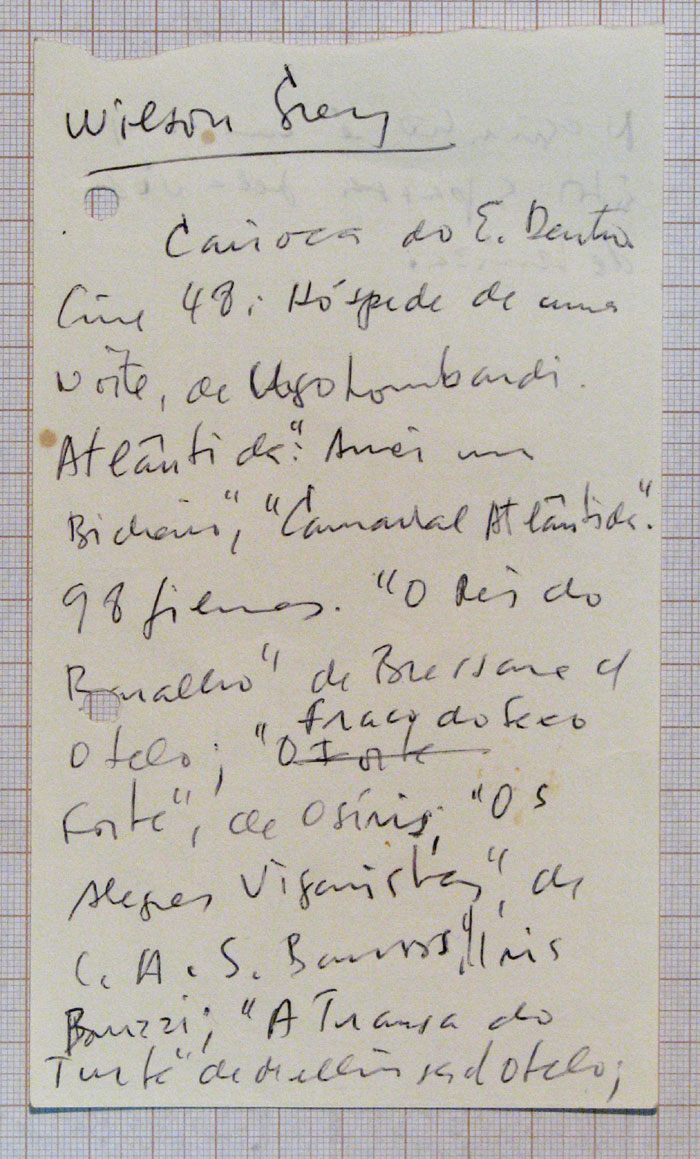 Wilson Grey
Carioca do E. Dentro
Cine 48: Hóspede de uma
noite, de Ugo Lombardi.
Atlântida": Amei um
Bicheiro", "Carnaval Atlântida".
98 filmes. "O Rei do
Baralho" de Bressane c/
Otelo; "O Forte fraco do sexo
forte", de Osíris; "Os
Alegres Vigaristas", de
C. A. S. Barros, Íris
Bruzzi; "A Transa do
Turfe" de c/ Otelo;